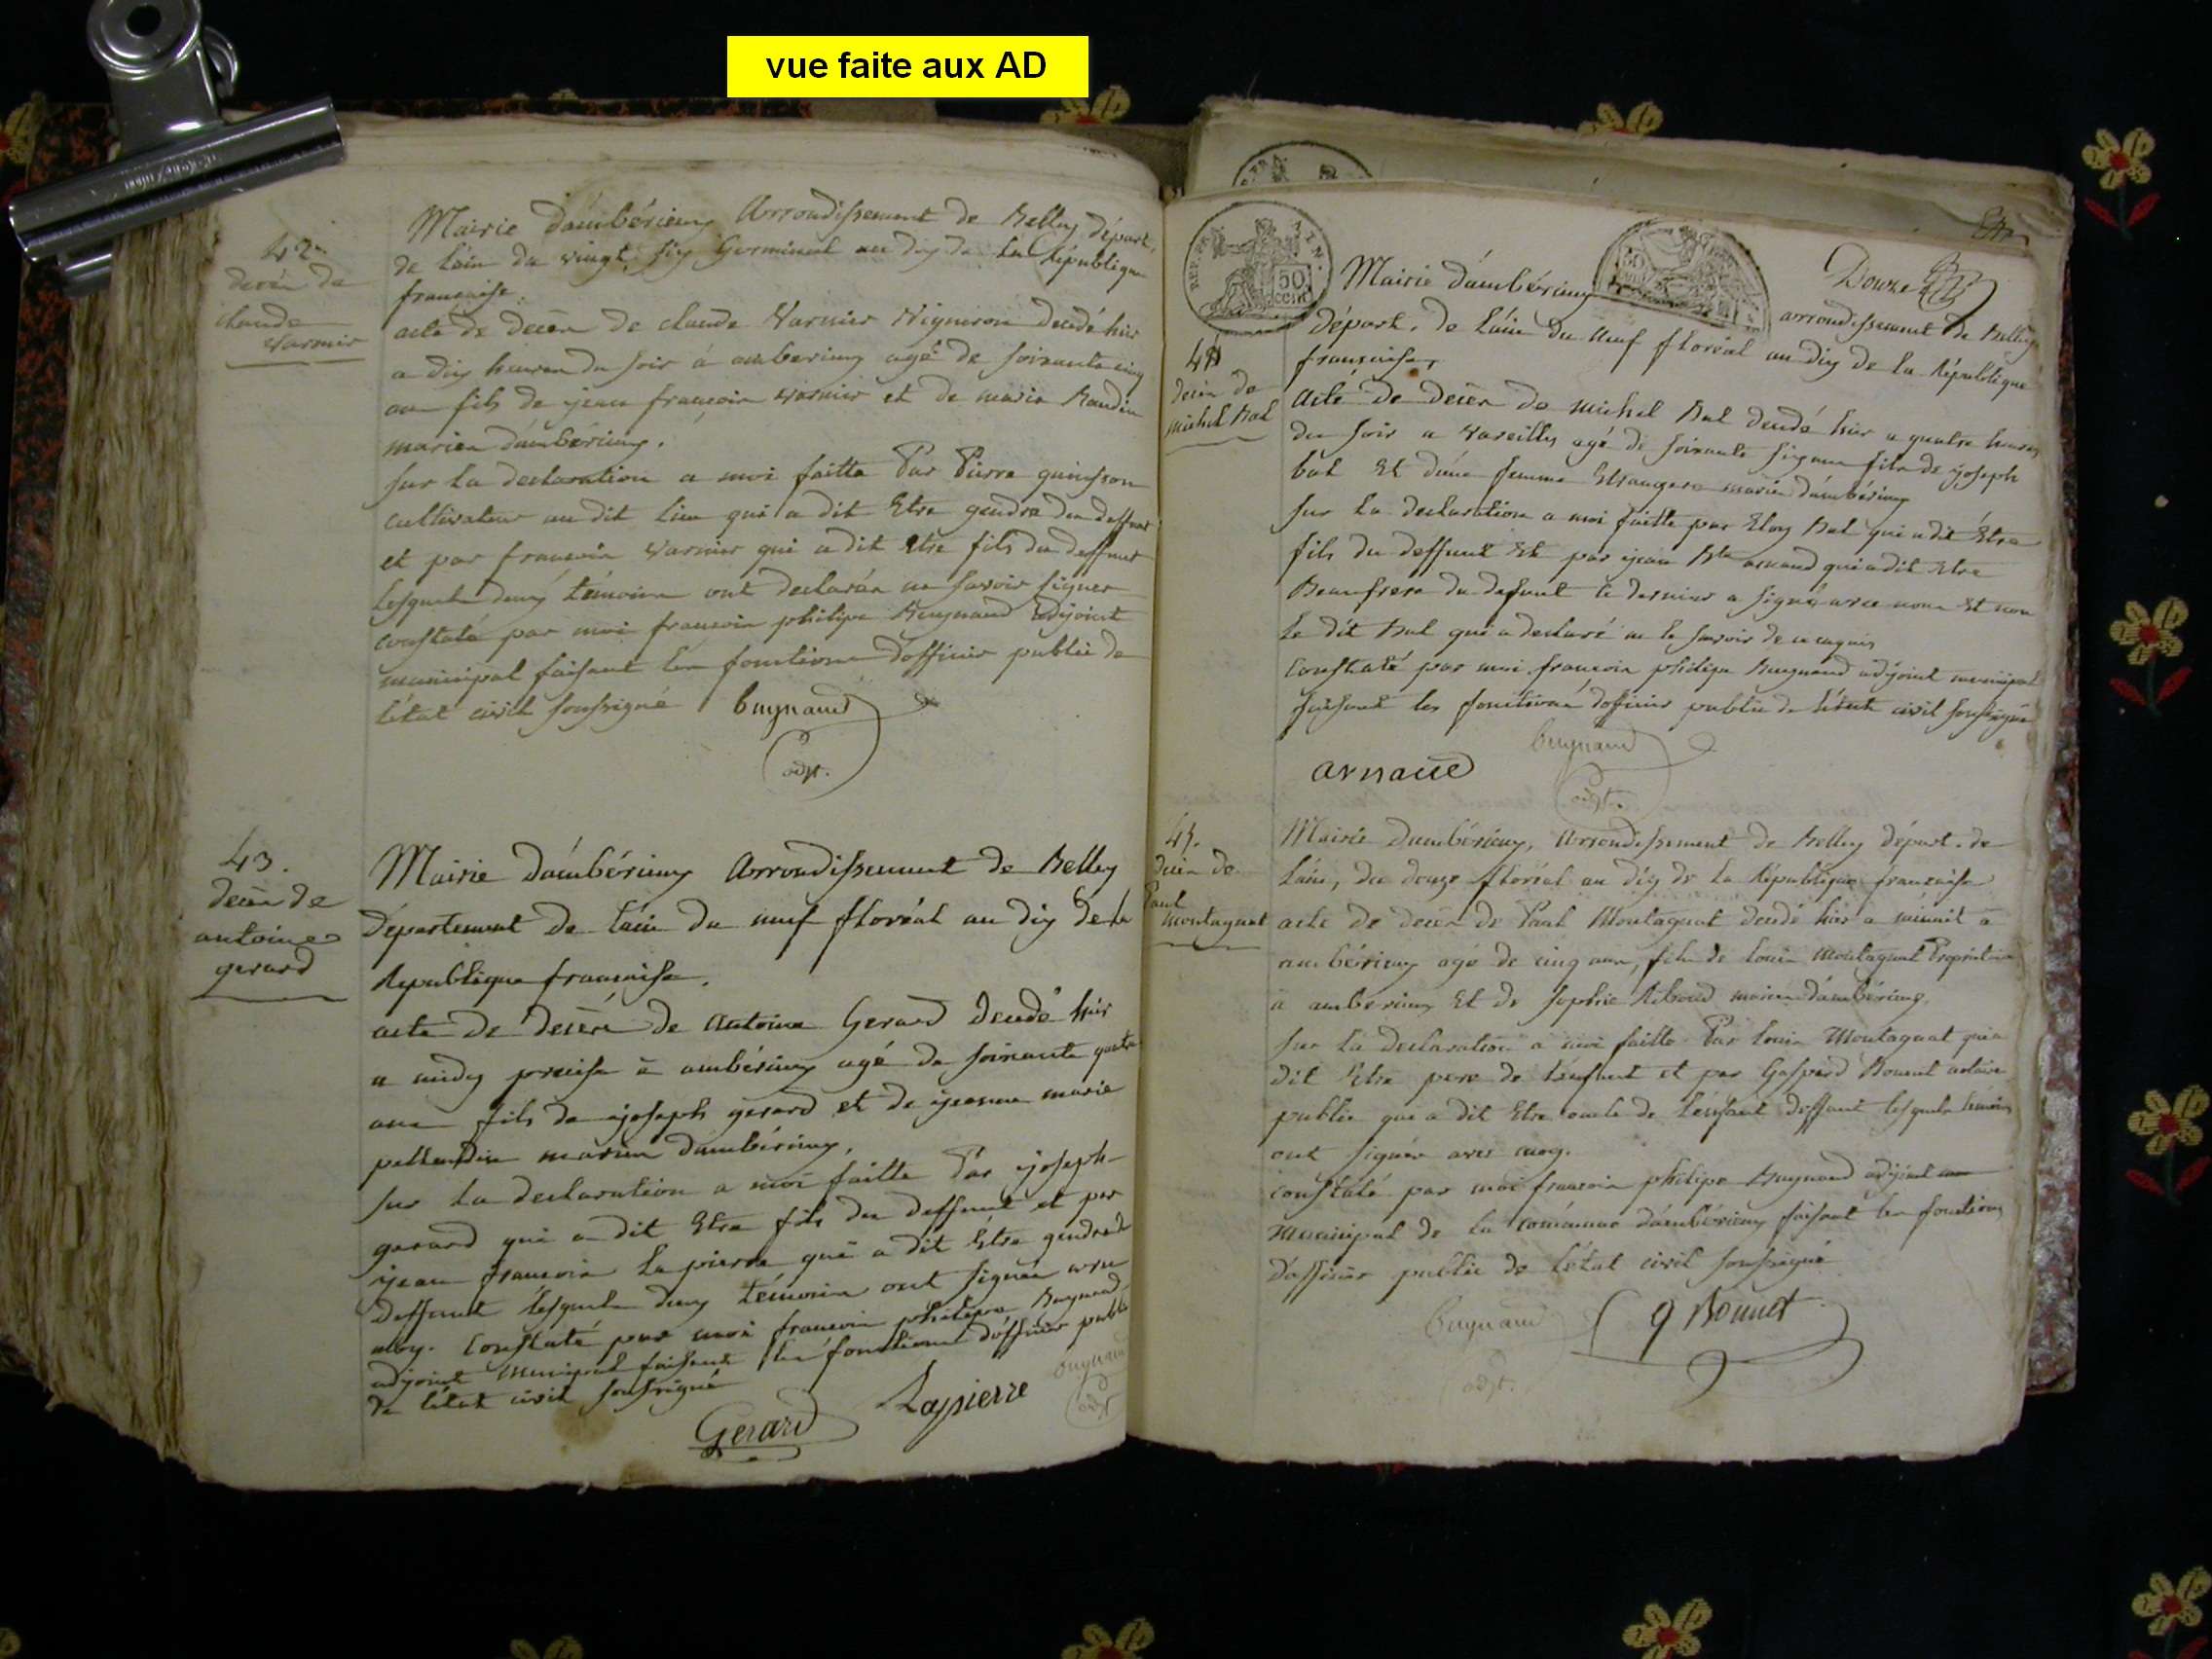 vue faite aux AD
42
décès de
claude
Varnier
Mairie d'ambérieux Arrondissement de Belley départ.
de l'ain du vingt six Germinal an dix de la République
française.
acte de décès de claude Varnier Vigneron decédé hier
a dix heures du soir à amberieux agé de soixante cinq
ans fils de jean françois varnier et de marie Baudin
mariés d'ambérieux.
sur la declaration a moi faitte Par Pierre quinson
cultivateur au dit lieu qui a dit Etre gendre du deffunt
et par francois varnier qui a dit Etre fils du deffunt
lesquels deux témoins ont déclarés ne savoir signer
constaté par moi francois philipe Bugnand Adjoint
municipal faisant les fonctions d'officier public de
l'état civil soussigné
bugnand
adjt.
43.
décès de
antoine
gerard
Mairie d'ambérieux Arrondissement de Belley
Département de l'ain du neuf floréal an dix de la
République française.
acte de décès de Antoine Gerard décédé hier
a midy précise à ambérieux agé de soixante quatre
ans fils de joseph gerard et de jeanne marie
mariés d'ambérieux.
sur la declaration a moi faitte Par joseph
gerard qui a dit Etre fils du deffunt et par
jean francois la pierre qui a dit Etre gendre du
deffunt lesquels deux témoins ont signés avec
moy. Constaté par moi francois philipe Bugnand
adjoint municipal faisant les fonctions d'officier public
de l'état civil soussigné
Gerard
Lapierre
bugnand
adjt
REP. FRA. AIN.
50
cent
Douze
44
décès de
michel Bal
Mairie d'ambérieux arrondissement de Belley
départ. de l'ain du neuf floréal an dix de la République
française.
Acte de décès de michel Bal decédé hier a quatre heures
du soir a Vareilles agé de soixante six ans fils de joseph
bal Et d'une femme Etrangere mariés d'ambérieux
sur la declaration a moi faitte par Eloy Bal qui a dit Etre
fils du deffunt Et par jean Bte arnaud qui a dit Etre
Beaufrere du defunt le dernier a signé avec nous Et non
le dit Bal qui a declaré ne le savoir de ce requis
Constaté par moi francois philipe Bugnand adjoint municipal
faisant les fonctions d'officier public de l'état civil soussigné
bugnand
arnaud
adjt.
45.
décès de
Paul
montagnat
Mairie d'ambérieux, Arrondissement de Belley départ. de
l'ain, du douze floréal an dix de la République française
acte de décès de Paul Montagnat decédé hier a minuit à
ambérieux agé de cinq ans, fils de louis montagnat Propriétaire
à amberieux Et de sophie Riboud mariés d'ambérieux.
sur la declaration a moi faitte Par louis Montagnat qui a
dit Etre pere de l'enfant et par Gaspard Bonnet notaire
public qui a dit Etre oncle de l'enfant deffunt lesquels témoins
ont signés avec moy.
constaté par moi francois philipe Bugnand adjoint
municipal de la commune d'ambérieux faisant les fonctions
d'officier public de l'état civil soussigné
bugnand
g Bonnet
adjt.